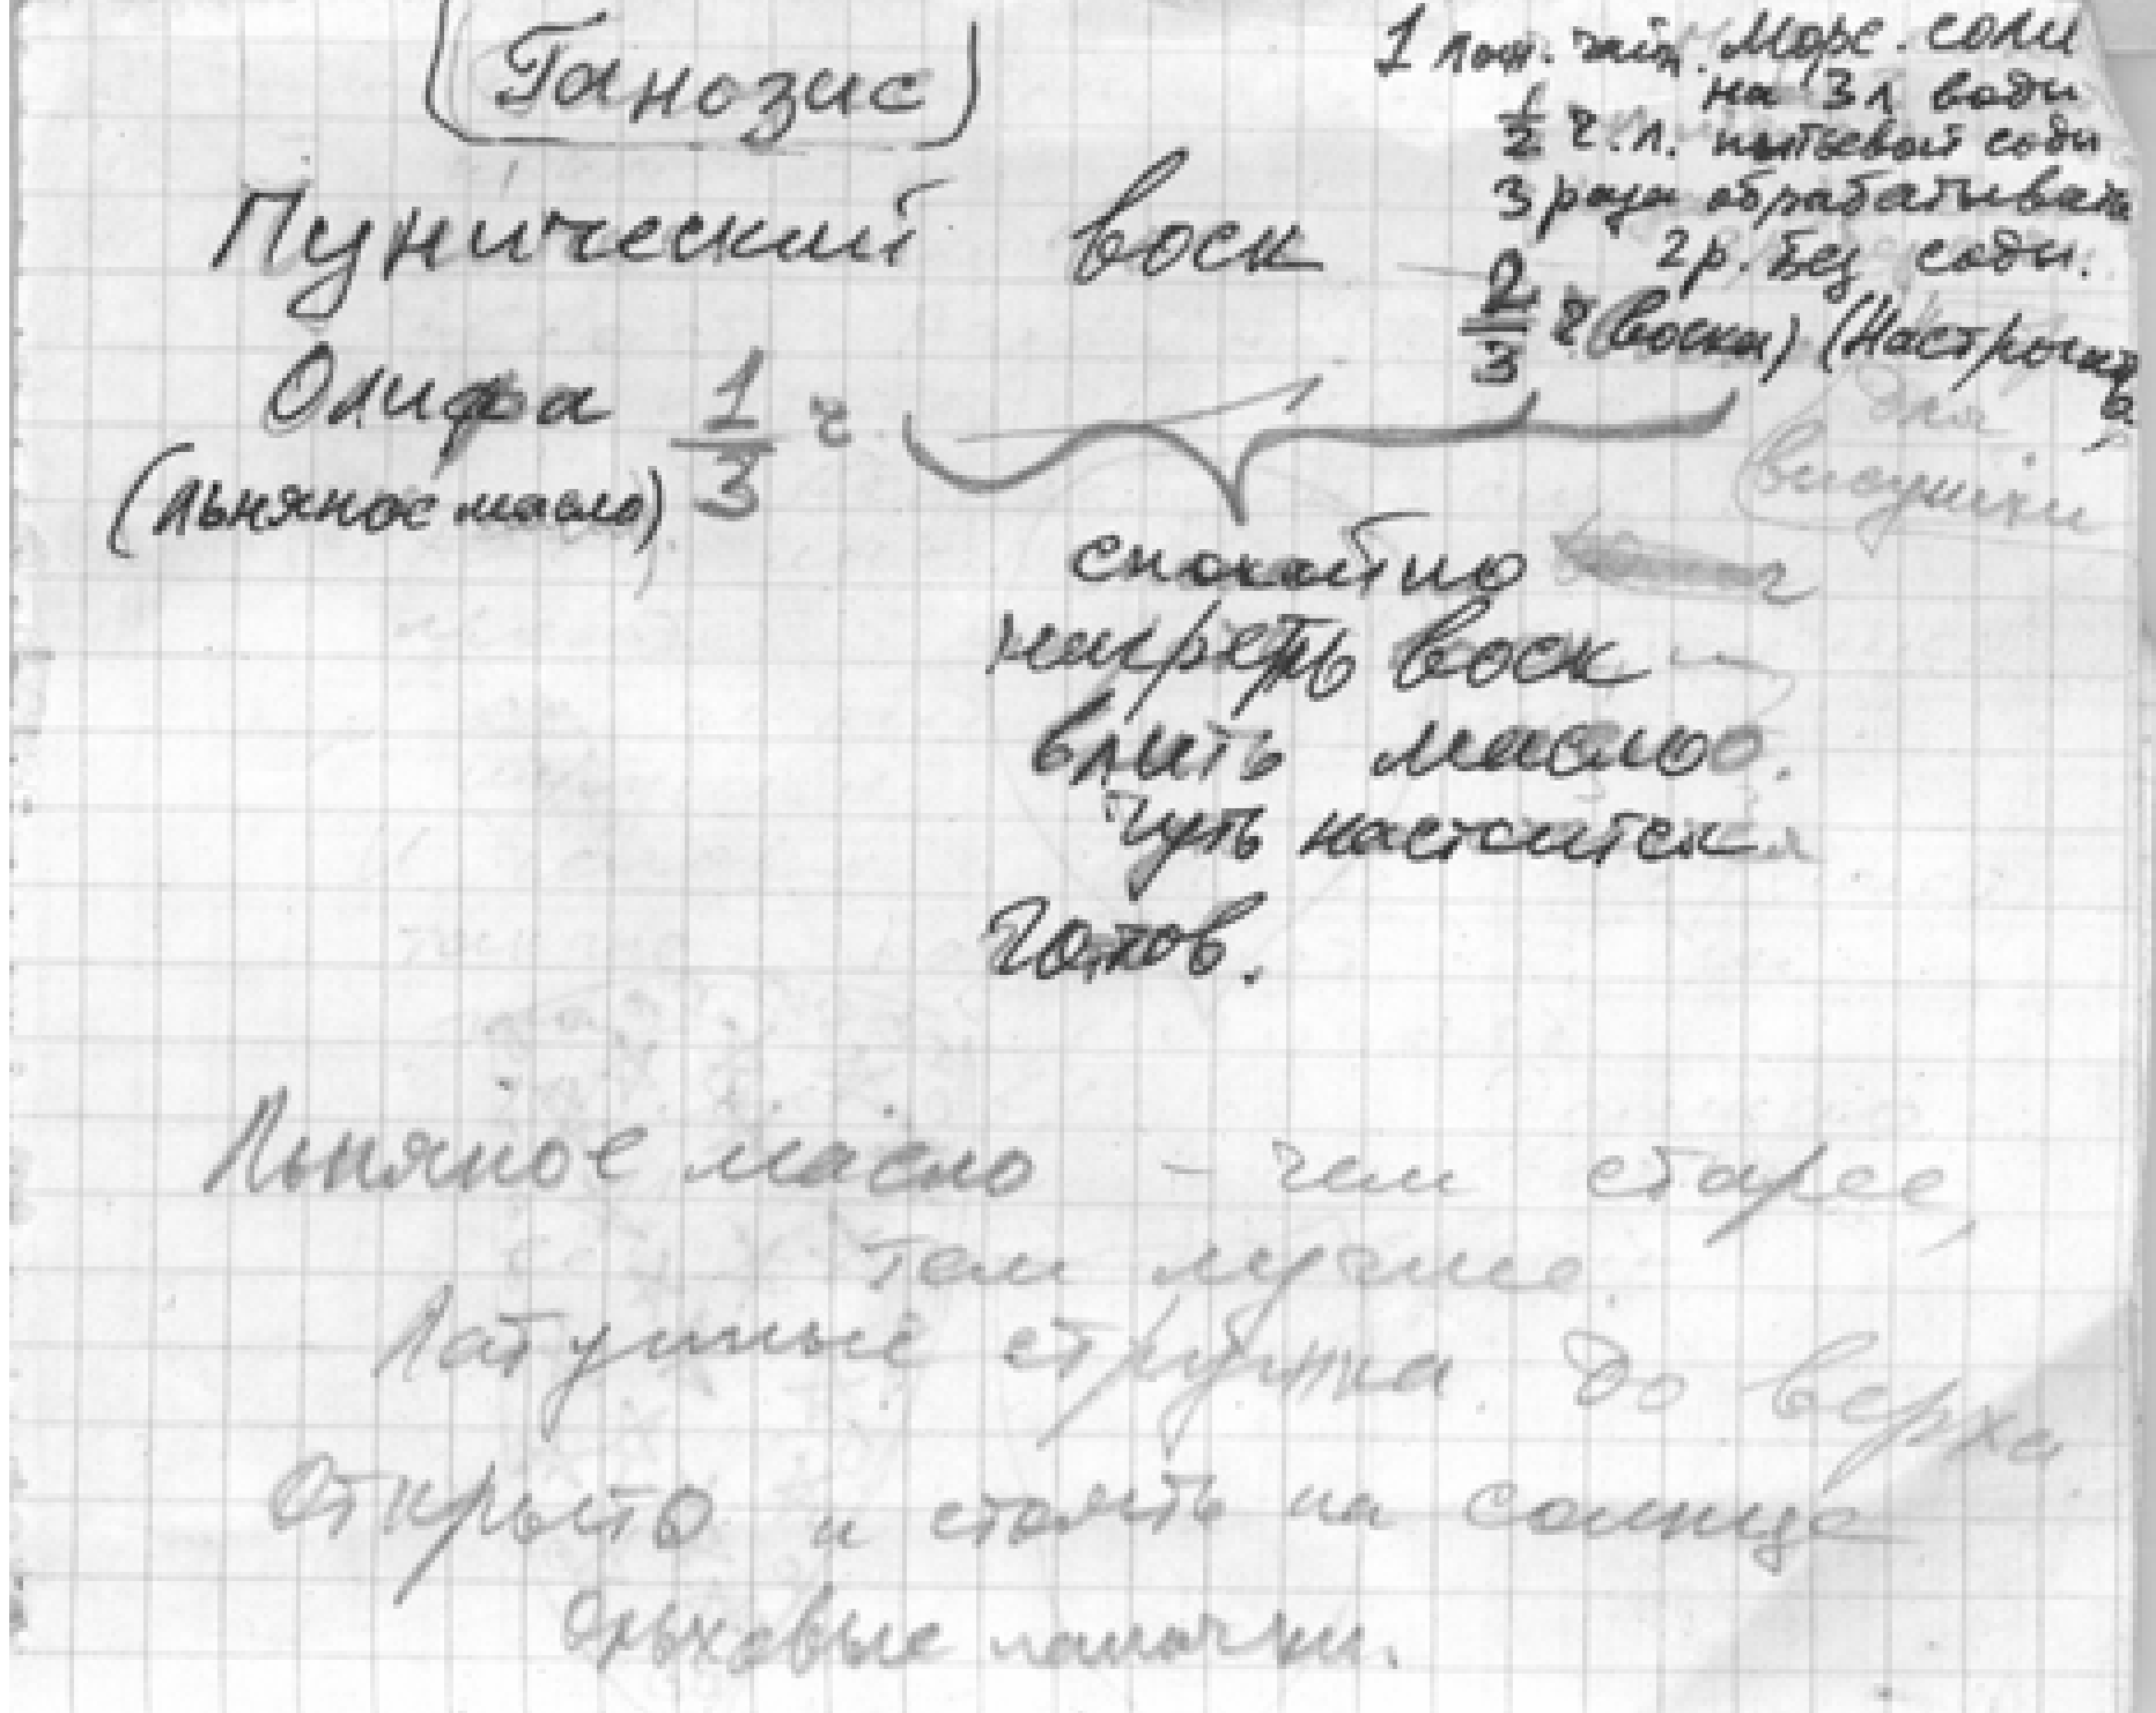 Ганозис
1 лож. чайн. Морс. соли
на 3л воды
1/2 ч.л. питьевой соды
3 раза обрабатывать
2р. без соды.
Пунический воск
2/3 ч (воска) (Настрогать
для
высушки
Олифа 1/3 ч
(льняное масло)
спокойно
нагреть воск
влить масло.
Чуть настоится
Готов.
Льняное масло - чем старее,
тем лучше.
Латунные стружка. До верха.
Открыто и стоять на солнце
Ольховые палочки.